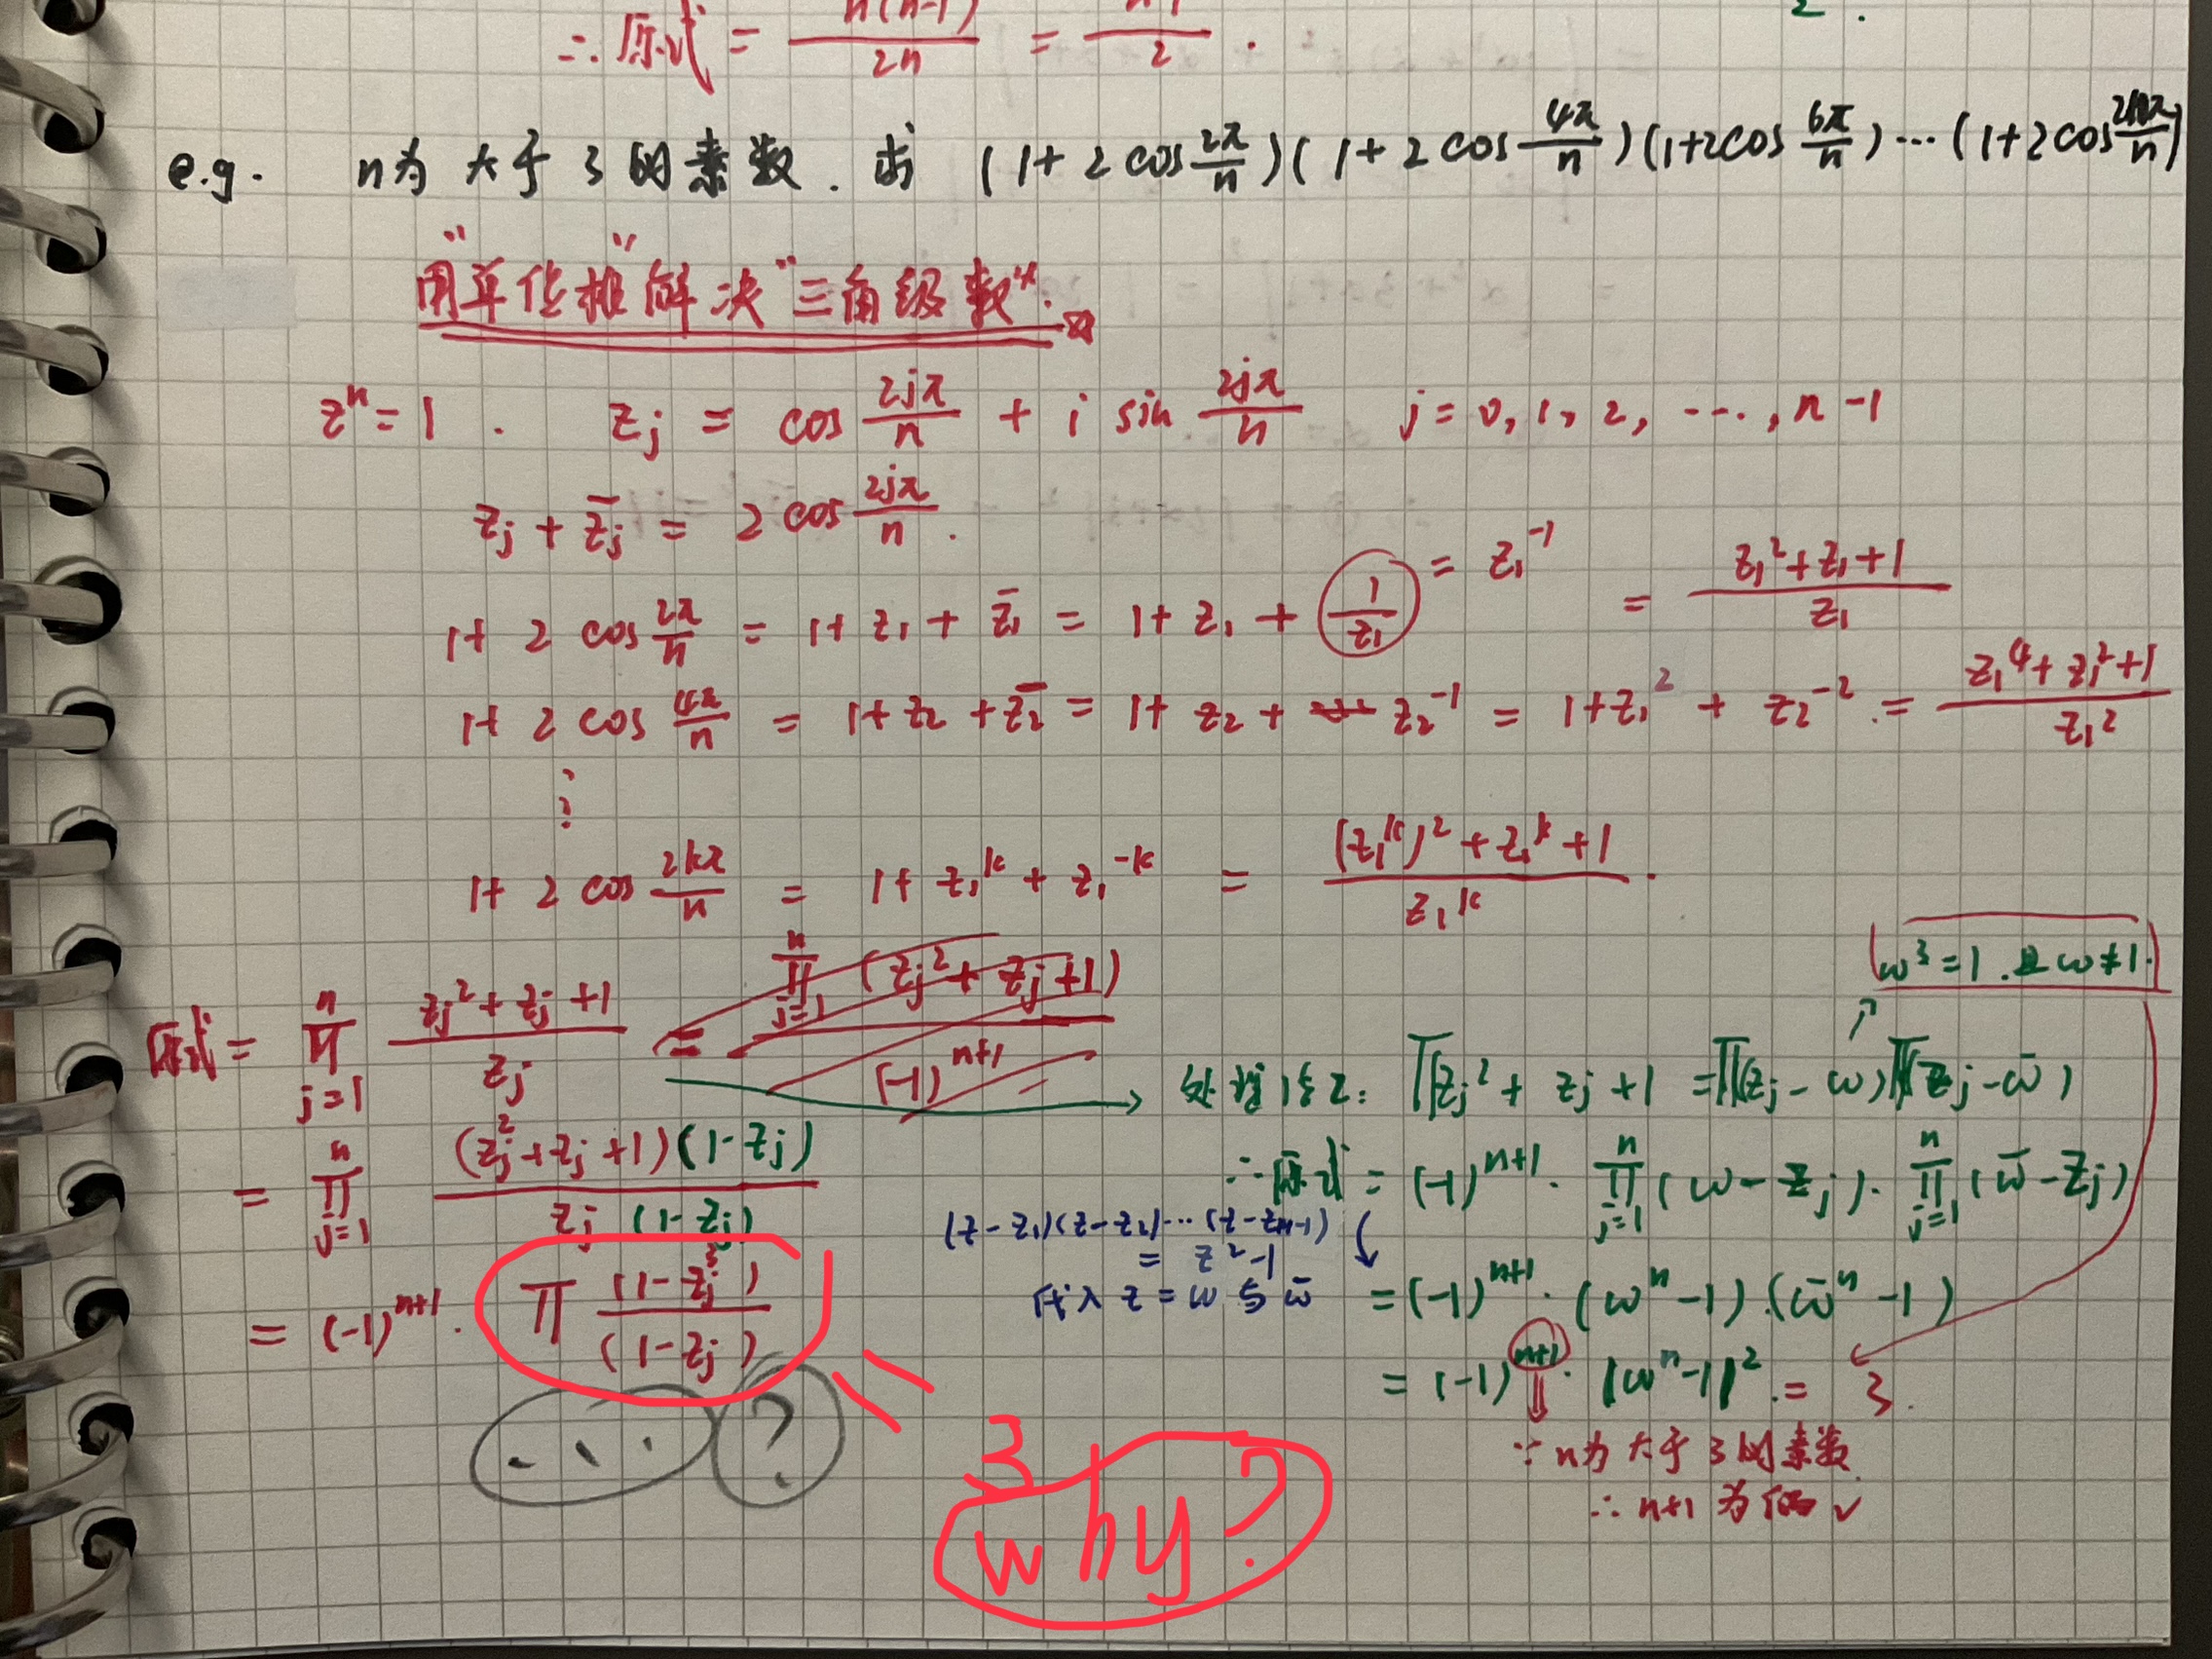 ∴ 原式 = n(n-1)/2n = n-1/2 .
2 .
e.g. n为大于3的素数. 求 (1+2cos 2π/n)(1+2cos 4π/n)(1+2cos 6π/n)⋯(1+2cos 2nπ/n)
用"单位根"解决"三角级数".
zⁿ=1 . z_j = cos 2jπ/n + i sin 2jπ/n j=0,1,2,⋯,n-1
z_j + z̄_j = 2cos 2jπ/n .
1+2cos 2π/n = 1+z₁+z̄₁ = 1+z₁+ 1/z₁ = z₁⁻¹ = z₁²+z₁+1/z₁
1+2cos 4π/n = 1+z₂+z̄₂ = 1+z₂+z₂⁻¹ = 1+z₁²+z₂⁻² = z₁⁴+z₁²+1/z₁²
⋮
1+2cos 2kπ/n = 1+z₁ᵏ+z₁⁻ᵏ = (z₁ᵏ)²+z₁ᵏ+1/z₁ᵏ .
ω³=1 .且 ω≠1.
原式 = ∏_{j=1}^{n} z_j²+z_j+1/z_j = ∏_{j=1}^{n}(z_j²+z_j+1)/(-1)ⁿ⁺¹
→ 处理1告2: ∏z_j²+z_j+1 = ∏(z_j-ω)∏(z_j-ω̄)
= ∏_{j=1}^{n} (z_j²+z_j+1)(1-z_j)/z_j(1-z_j)
∴原式 = (-1)ⁿ⁺¹ · ∏_{j=1}^{n}(ω-z_j) · ∏_{j=1}^{n}(ω̄-z_j)
(z-z₁)(z-z₂)⋯(z-z_{n-1})
= z²-1
代入 z=ω与ω̄
= (-1)ⁿ⁺¹ · (ωⁿ-1)·(ω̄ⁿ-1)
= (-1)ⁿ⁺¹ · ∏ (1-z_j³)/(1-z_j)
= (-1)ⁿ⁺¹ · |ωⁿ-1|² = 3.
...?
= 3
why?
∵ n为大于3的素数
∴ n+1为偶 √